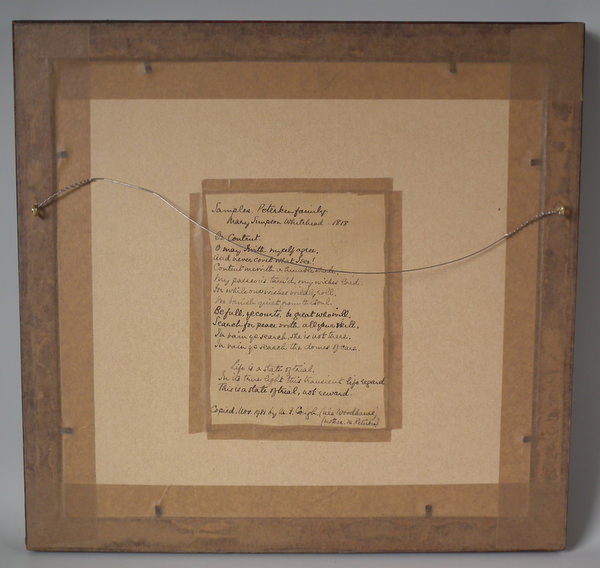 Sampler. Peterkin family.
Mary Simpson Whitehead 1818.
On Content.
O may I with myself agree,
And never covet what I see!
Content me with a humble shade,
My passions tam'd, my wishes laid.
For while our wishes wildly roll,
We banish quiet from the soul.
Be full, ye courts, be great who will,
Search for peace with all your skill,
In vain ye search, she is not there,
In vain ye search the domes of care.
Life is a state of trial.
In its true light this transient life regard
This is a state of trial, not reward.
Copied. Nov. 1931 by M. S. Gough. (née Woodhouse)
(mother, M. Peterkin)